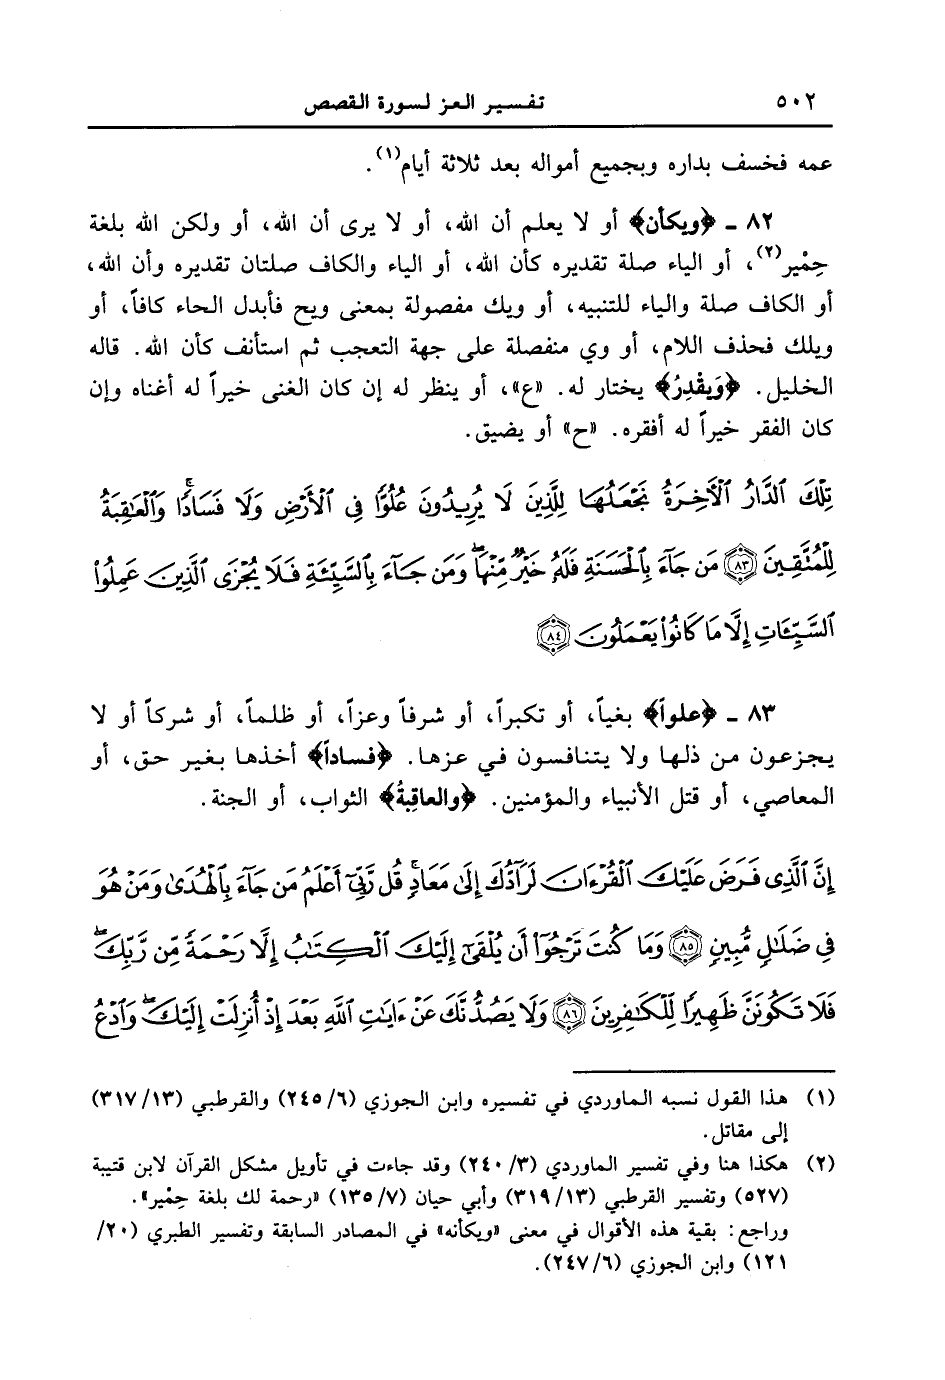 ٥٠٢ تفسير العز لسورة القصص
عمه فخسف بداره وبجميع أمواله بعد ثلاثة أيام(١).
٨٢ ـ ﴿ويكأن﴾ أو لا يعلم أن الله، أو لا يرى أن الله، أو ولكن الله بلغة
حِمْير(٢)، أو الياء صلة تقديره كأن الله، أو الياء والكاف صلتان تقديره وأن الله،
أو الكاف صلة والياء للتنبيه، أو ويك مفصولة بمعنى ويح فأبدل الحاء كافاً، أو
ويلك فحذف اللام، أو وي منفصلة على جهة التعجب ثم استأنف كأن الله. قاله
الخليل. ﴿وَيقْدِرُ﴾ يختار له. «ع»، أو ينظر له إن كان الغنى خيراً له أغناه وإن
كان الفقر خيراً له أفقره. «ح» أو يضيق.
تِلْكَ ٱلدَّارُ ٱلْأَخِرَةُ نَجْعَلُهَا لِلَّذِينَ لَا يُرِيدُونَ عُلُوًّا فِى ٱلْأَرْضِ وَلَا فَسَادًا ۚ وَٱلْعَٰقِبَةُ
لِلْمُتَّقِينَ ﴿٨٣﴾ مَن جَآءَ بِٱلْحَسَنَةِ فَلَهُۥ خَيْرٌ مِّنْهَا ۖ وَمَن جَآءَ بِٱلسَّيِّئَةِ فَلَا يُجْزَى ٱلَّذِينَ عَمِلُوا۟
ٱلسَّيِّـَٔاتِ إِلَّا مَا كَانُوا۟ يَعْمَلُونَ ﴿٨٤﴾
٨٣ ـ ﴿علواً﴾ بغياً، أو تكبراً، أو شرفاً وعزاً، أو ظلماً، أو شركاً أو لا
يجزعون من ذلها ولا يتنافسون في عزها. ﴿فساداً﴾ أخذها بغير حق، أو
المعاصي، أو قتل الأنبياء والمؤمنين. ﴿والعاقِبةُ﴾ الثواب، أو الجنة.
إِنَّ ٱلَّذِى فَرَضَ عَلَيْكَ ٱلْقُرْءَانَ لَرَآدُّكَ إِلَىٰ مَعَادٍ ۚ قُل رَّبِّىٓ أَعْلَمُ مَن جَآءَ بِٱلْهُدَىٰ وَمَنْ هُوَ
فِى ضَلَٰلٍ مُّبِينٍ ﴿٨٥﴾ وَمَا كُنتَ تَرْجُوٓا۟ أَن يُلْقَىٰٓ إِلَيْكَ ٱلْكِتَٰبُ إِلَّا رَحْمَةً مِّن رَّبِّكَ ۖ
فَلَا تَكُونَنَّ ظَهِيرًا لِّلْكَٰفِرِينَ ﴿٨٦﴾ وَلَا يَصُدُّنَّكَ عَنْ ءَايَٰتِ ٱللَّهِ بَعْدَ إِذْ أُنزِلَتْ إِلَيْكَ ۖ وَٱدْعُ
(١) هذا القول نسبه الماوردي في تفسيره وابن الجوزي (٢٤٥/٦) والقرطبي (٣١٧/١٣)
إلى مقاتل.
(٢) هكذا هنا وفي تفسير الماوردي (٢٤٠/٣) وقد جاءت في تأويل مشكل القرآن لابن قتيبة
(٥٢٧) وتفسير القرطبي (٣١٩/١٣) وأبي حيان (١٣٥/٧) «رحمة لك بلغة حِمْير».
وراجع: بقية هذه الأقوال في معنى «ويكأنه» في المصادر السابقة وتفسير الطبري (٢٠/
١٢١) وابن الجوزي (٢٤٧/٦).